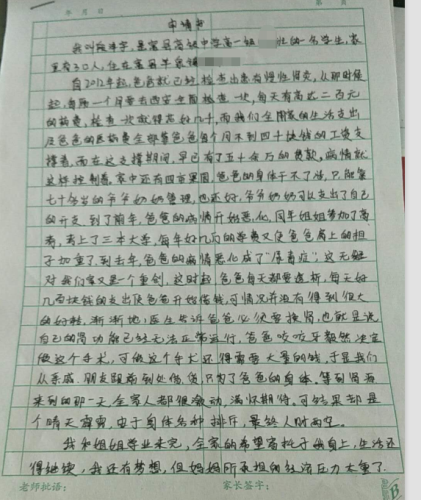 年 月 日
申请书
我叫 宇,是富县高级中学高一级 班的一名学生,家
里有3口人,住在富县羊泉镇
自2012年起,爸爸就已经检查出患有慢性肾炎,从那时候
起,每隔一个月要去西安全面检查一次,每天有高达二百元
的药费,检查一次就得高好几千,而我们全家的生活支出
及爸爸的医药费全部靠爸爸每个月不到四千块钱的工资支
撑着,而在这支撑期间,早已有了五十余万的贷款,病情就
这样控制着,家中还有四亩果园,爸爸的身体干不了活,只能靠
七十多岁的爷爷奶奶管理,也还好,爷爷奶奶可以支出了自己
的开支,到了前年,爸爸的病情开始恶化,同年姐姐参加了高
考,考上了三本大学,每年好几万的学费又使爸爸肩上的担
子加重了,到去年,爸爸的病情恶化成了“尿毒症”,这无疑
对我们家又是一个重创,这时起,爸爸每天都要透析,每天好
几百块钱的支出使爸爸开始借钱,可情况并没有得到很大
的好转,渐渐地,医生告诉爸爸必须要换肾,也就是说
自己的肾功能已经无法正常运行,爸爸咬咬牙毅然决定
做这个手术,可做这个手术还得需要大量的钱,于是我们
从亲戚、朋友跟前到处借,只为了爸爸的身体,等到肾源
来到的那一天,全家人都很激动,满怀期待,可结果却是
个晴天霹雳,由于身体各种排斥,最终人财两空。
我和姐姐学业未完,全家的希望寄托于妈妈身上,生活还
得继续,我还有梦想,但妈妈所承担的经济压力太重了
老师批语: 家长签字: